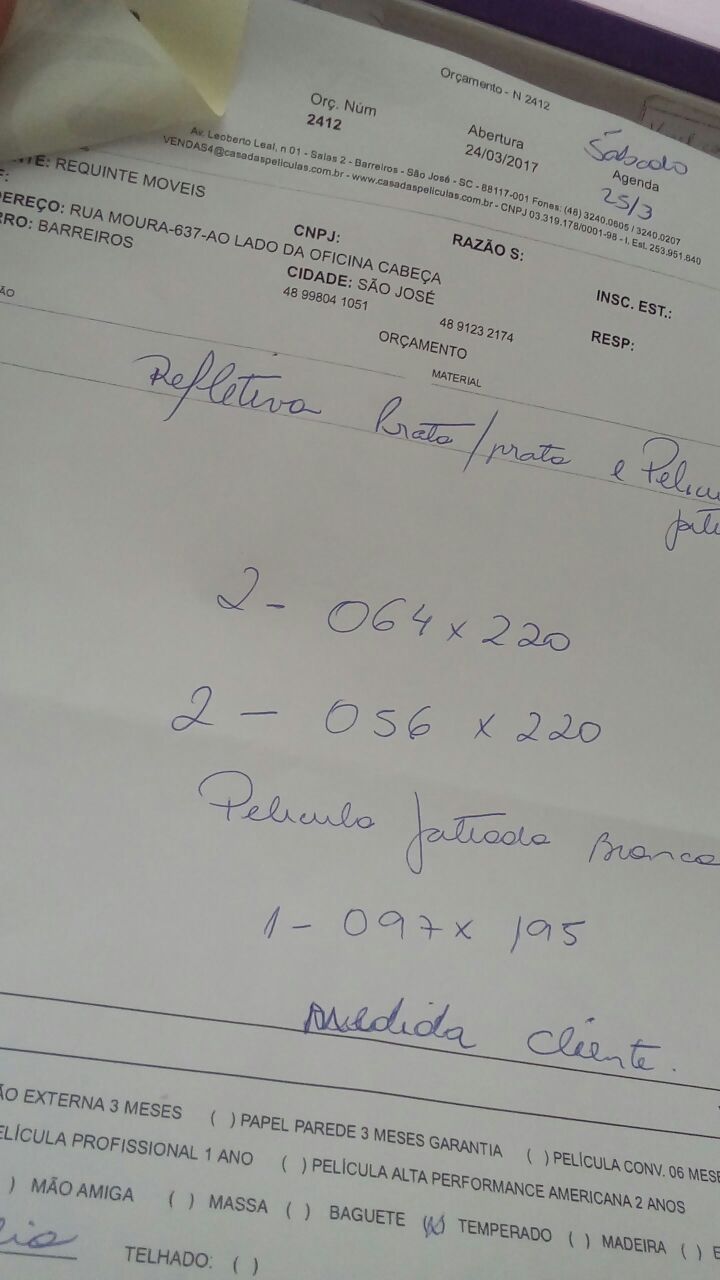 Orçamento - N 2412
Orç. Núm
2412
Abertura
24/03/2017
Sábado
Agenda
25/3
Av. Leoberto Leal, n 01 - Salas 2 - Barreiros - São José - SC - 88117-001 Fones: (48) 3240.0605 / 3240.0207
VENDAS4@casadaspeliculas.com.br - www.casadaspeliculas.com.br - CNPJ 03.319.178/0001-98 - I. Est. 253.951.640
NTE: REQUINTE MOVEIS
F:
CNPJ:
RAZÃO S:
INSC. EST.:
DEREÇO: RUA MOURA-637-AO LADO DA OFICINA CABEÇA
RRO: BARREIROS
CIDADE: SÃO JOSÉ
RESP:
48 99804 1051
48 9123 2174
ÃO
ORÇAMENTO
MATERIAL
Refletiva Prata/prata e Pelicu
jate
2 - 064 x 220
2 - 056 x 220
Pelicula Jateada Branca
1 - 097 x 195
Medida Cliente.
ÃO EXTERNA 3 MESES ( ) PAPEL PAREDE 3 MESES GARANTIA ( ) PELÍCULA CONV. 06 MESE
ELÍCULA PROFISSIONAL 1 ANO ( ) PELÍCULA ALTA PERFORMANCE AMERICANA 2 ANOS
) MÃO AMIGA ( ) MASSA ( ) BAGUETE (x) TEMPERADO ( ) MADEIRA ( ) E
TELHADO: ( )